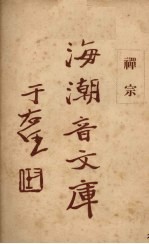 禪宗
海潮音文庫
于右任